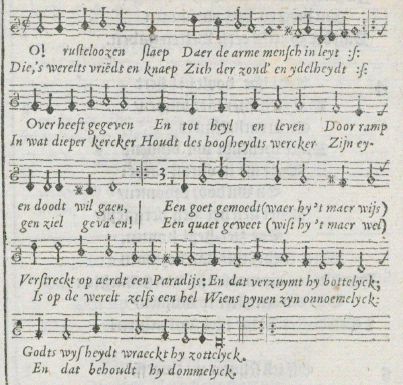 O! rusteloozen slaep Daer de arme mensch in leyt :ʃ:
Die,'s werelts vriēdt en knaep Zich der zond' en ydelheydt :ʃ:
Over heeft gegeven En tot heyl en leven Door ramp
In wat dieper kercker Houdt des boosheydts wercker Zijn ey-
en doodt wil gaen, Een goet gemoedt (waer hy 't maer wijs)
gen ziel gevaên! Een quaet geweet (wist hy 't maer wel)
Verstreckt op aerdt een Paradijs: En dat verzuymt hy bottelyck;
Is op de werelt zelfs een hel Wiens pynen zyn onnoemelyck:
Godts wysheydt wraeckt hy zottelyck.
En dat behoudt hy dommelyck.